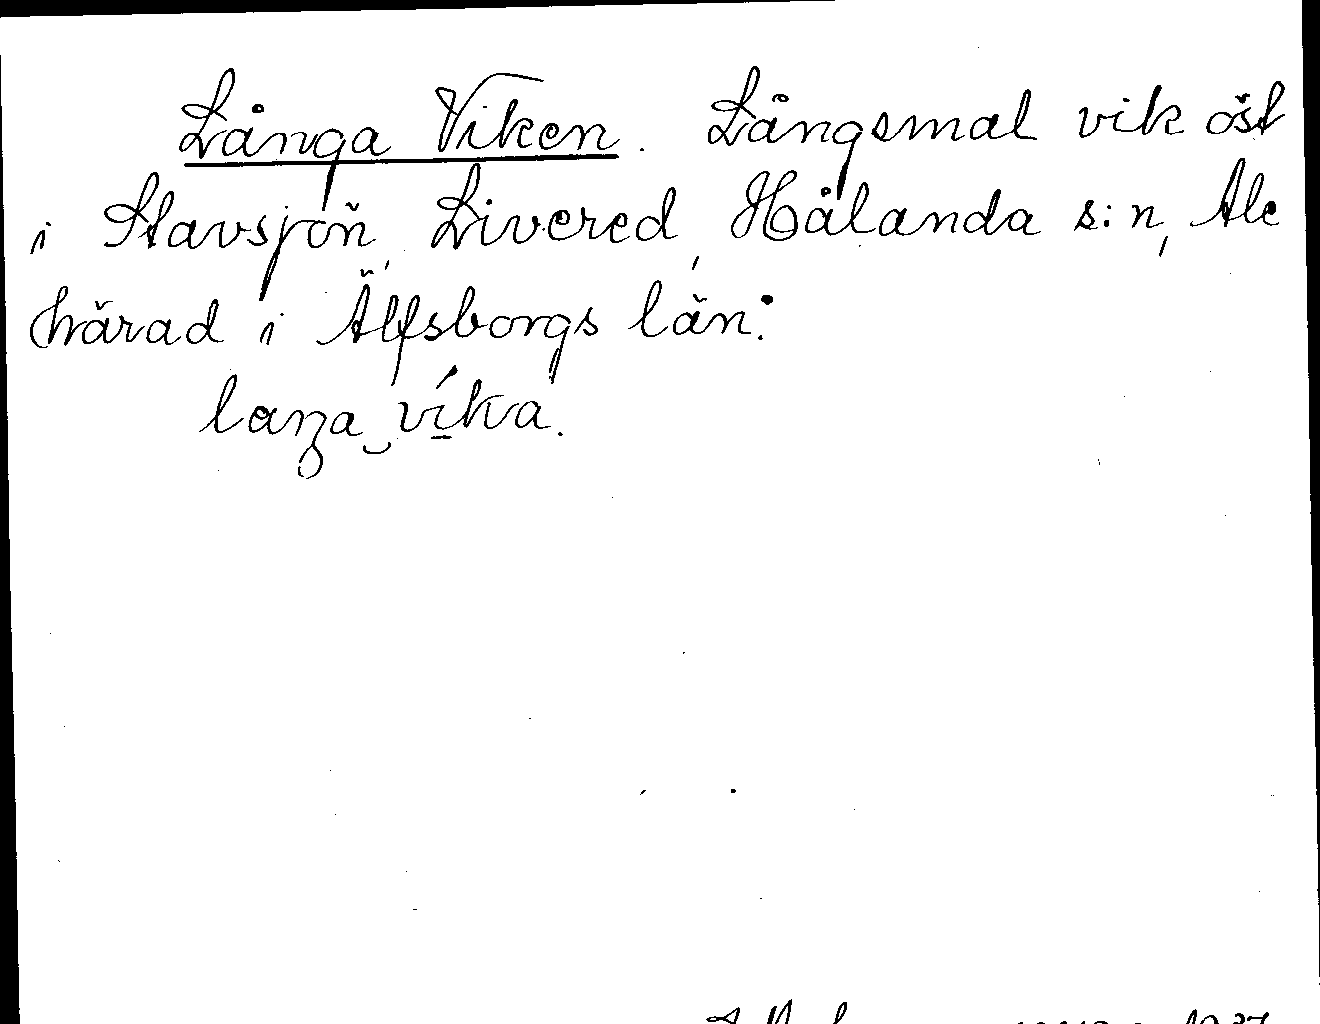 Långa Viken. Långsmal vik öst
i Stavsjön, Livered, Hålanda s:n, Ale
härad i Älfsborgs län.
laŋa‿víka.